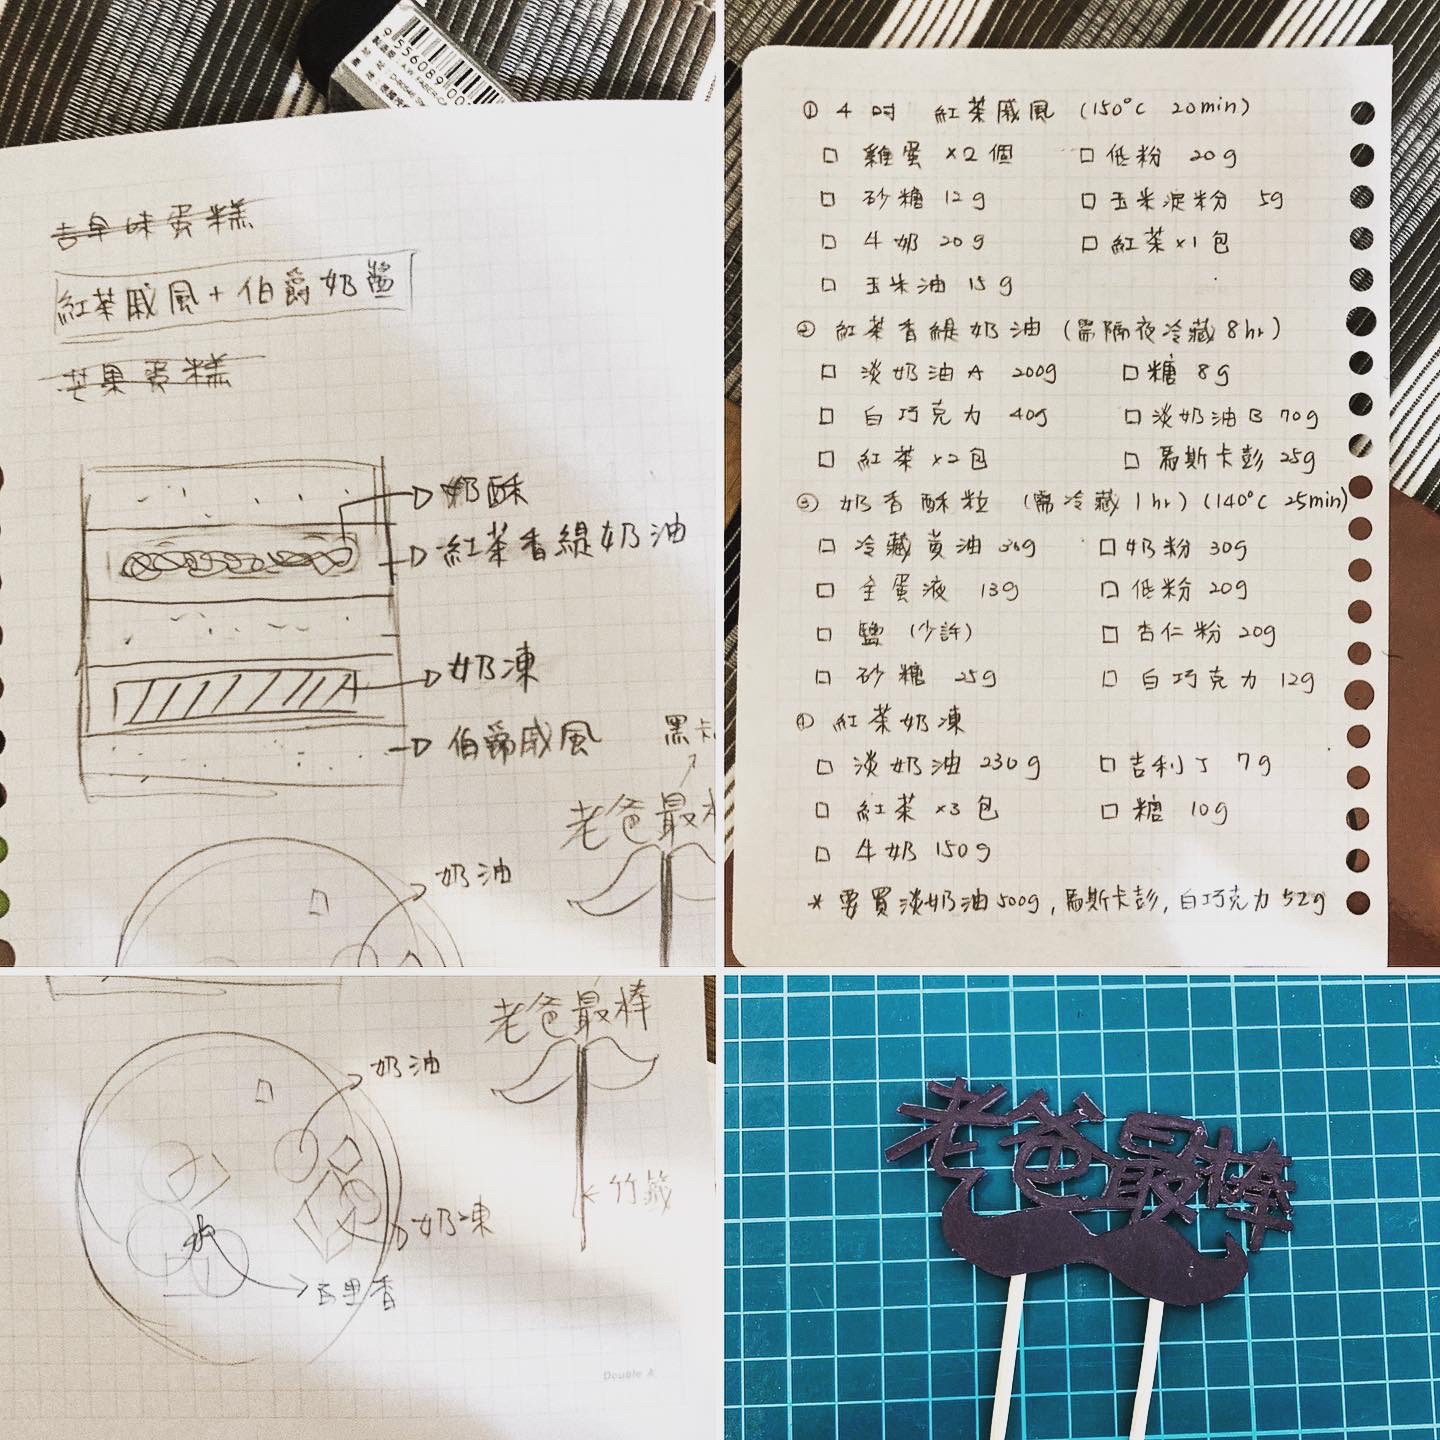 9556089100
A.W. FABER-CA
古早味蛋糕
紅茶戚風+伯爵奶醬
芒果蛋糕
奶酥
紅茶香緹奶油
奶凍
伯爵戚風
黑卡
老爸最棒
奶油
① 4吋 紅茶戚風 (150°C 20min)
□ 雞蛋 ×2個 □ 低粉 20g
□ 砂糖 12g □ 玉米淀粉 5g
□ 牛奶 20g □ 紅茶×1包
□ 玉米油 15g
② 紅茶香緹奶油 (需隔夜冷藏8hr)
□ 淡奶油A 200g □ 糖 8g
□ 白巧克力 40g □ 淡奶油B 70g
□ 紅茶×2包 □ 馬斯卡彭 25g
③ 奶香酥粒 (需冷藏1hr) (140°C 25min)
□ 冷藏黃油 36g □ 奶粉 30g
□ 全蛋液 13g □ 低粉 20g
□ 鹽 (少許) □ 杏仁粉 20g
□ 砂糖 25g □ 白巧克力 12g
④ 紅茶奶凍
□ 淡奶油 230g □ 吉利丁 7g
□ 紅茶×3包 □ 糖 10g
□ 牛奶 150g
* 要買淡奶油500g,馬斯卡彭,白巧克力52g
老爸最棒
奶油
竹籤
奶凍
百里香
Double A
老爸最棒